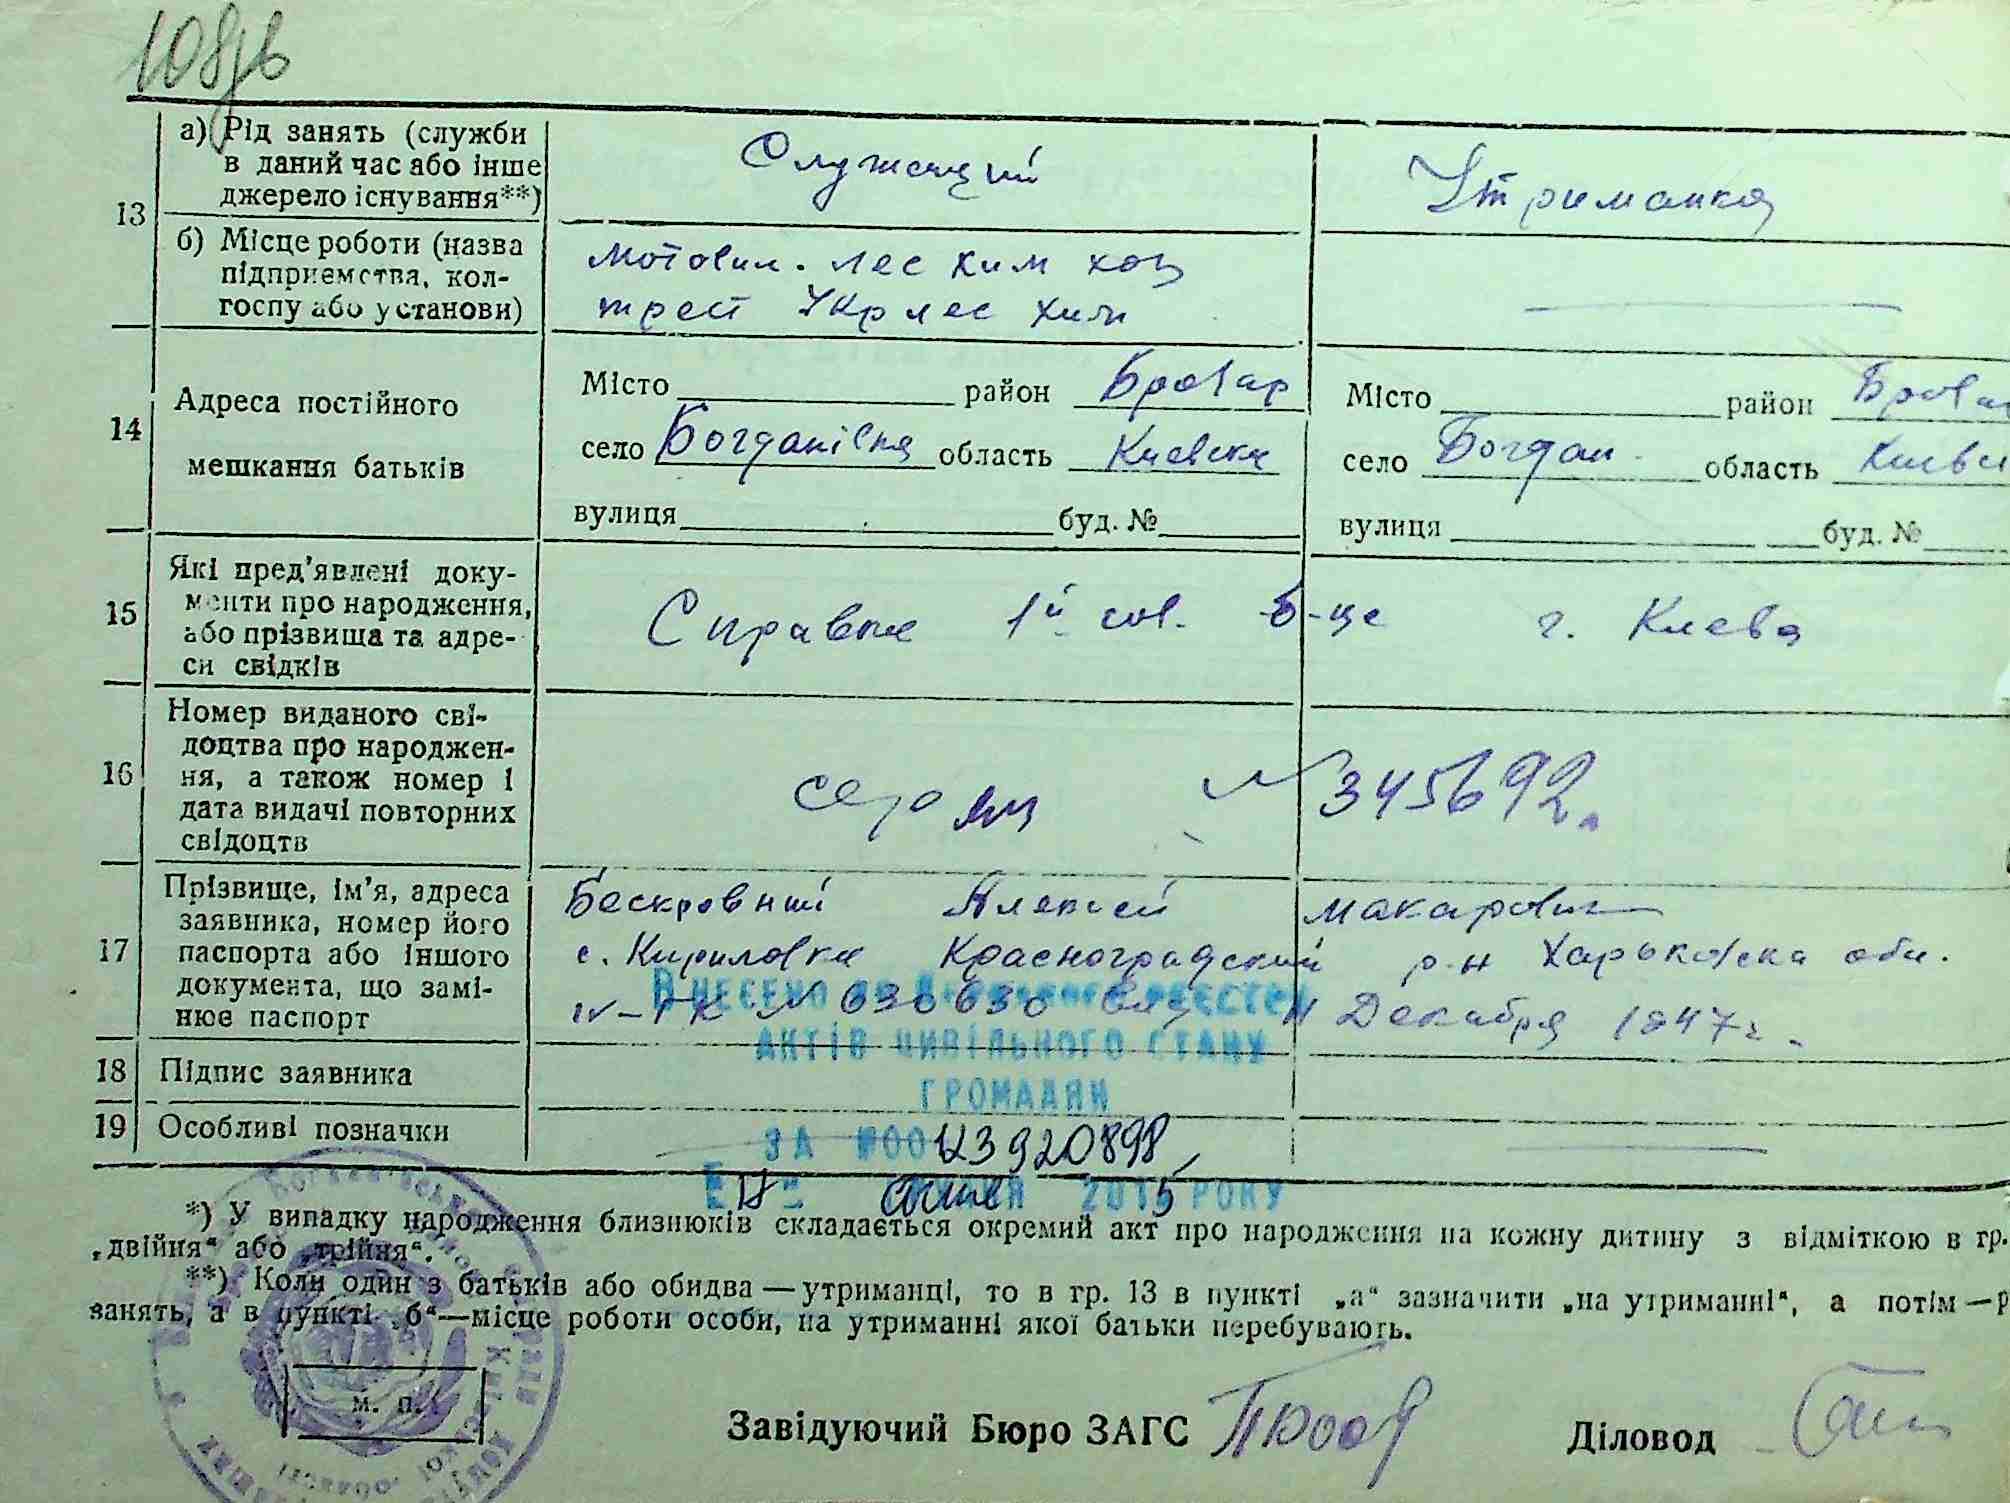 108зв
а) Рід занять (служби
в даний час або інше
джерело існування**)
Служащий
Утриманка
13
б) Місце роботи (назва
підприємства, кол-
госпу або установи)
Мотовил. лес хим хоз
трест Укрлес хим
14
Адреса постійного
мешкання батьків
Місто район Бровар
село Богданівка область Киевска
вулиця буд. №
Місто район Бровар
село Богдан. область Киевс
вулиця буд. №
15
Які пред'явлені доку-
менти про народження,
або прізвища та адре-
си свідків
Справка 1й сов. б-це г. Киева
16
Номер виданого сві-
доцтва про народжен-
ня, а також номер і
дата видачі повторних
свідоцтв
№ 345692.
17
Прізвище, ім'я, адреса
заявника, номер його
паспорта або іншого
документа, що замі-
нює паспорт
Бескровний Алексей Макарович
с. Кириловка Красноградский р-н Харьковска обл.
№ 636630 11 Декабря 1947г.
ВНЕСЕНО до Державного РЕЄСТРУ
АКТІВ ЦИВІЛЬНОГО СТАНУ
ГРОМАДЯН
ЗА №00123920898
2015 РОКУ
18 Підпис заявника
19 Особливі позначки
*) У випадку народження близнюків складається окремий акт про народження на кожну дитину з відміткою в гр.
„двійня“ або „трійня“.
**) Коли один з батьків або обидва — утриманці, то в гр. 13 в пункті „а“ зазначити „на утриманні“, а потім — р
занять, а в пункті „б“—місце роботи особи, на утриманні якої батьки перебувають.
м. п.
Завідуючий Бюро ЗАГС
Діловод